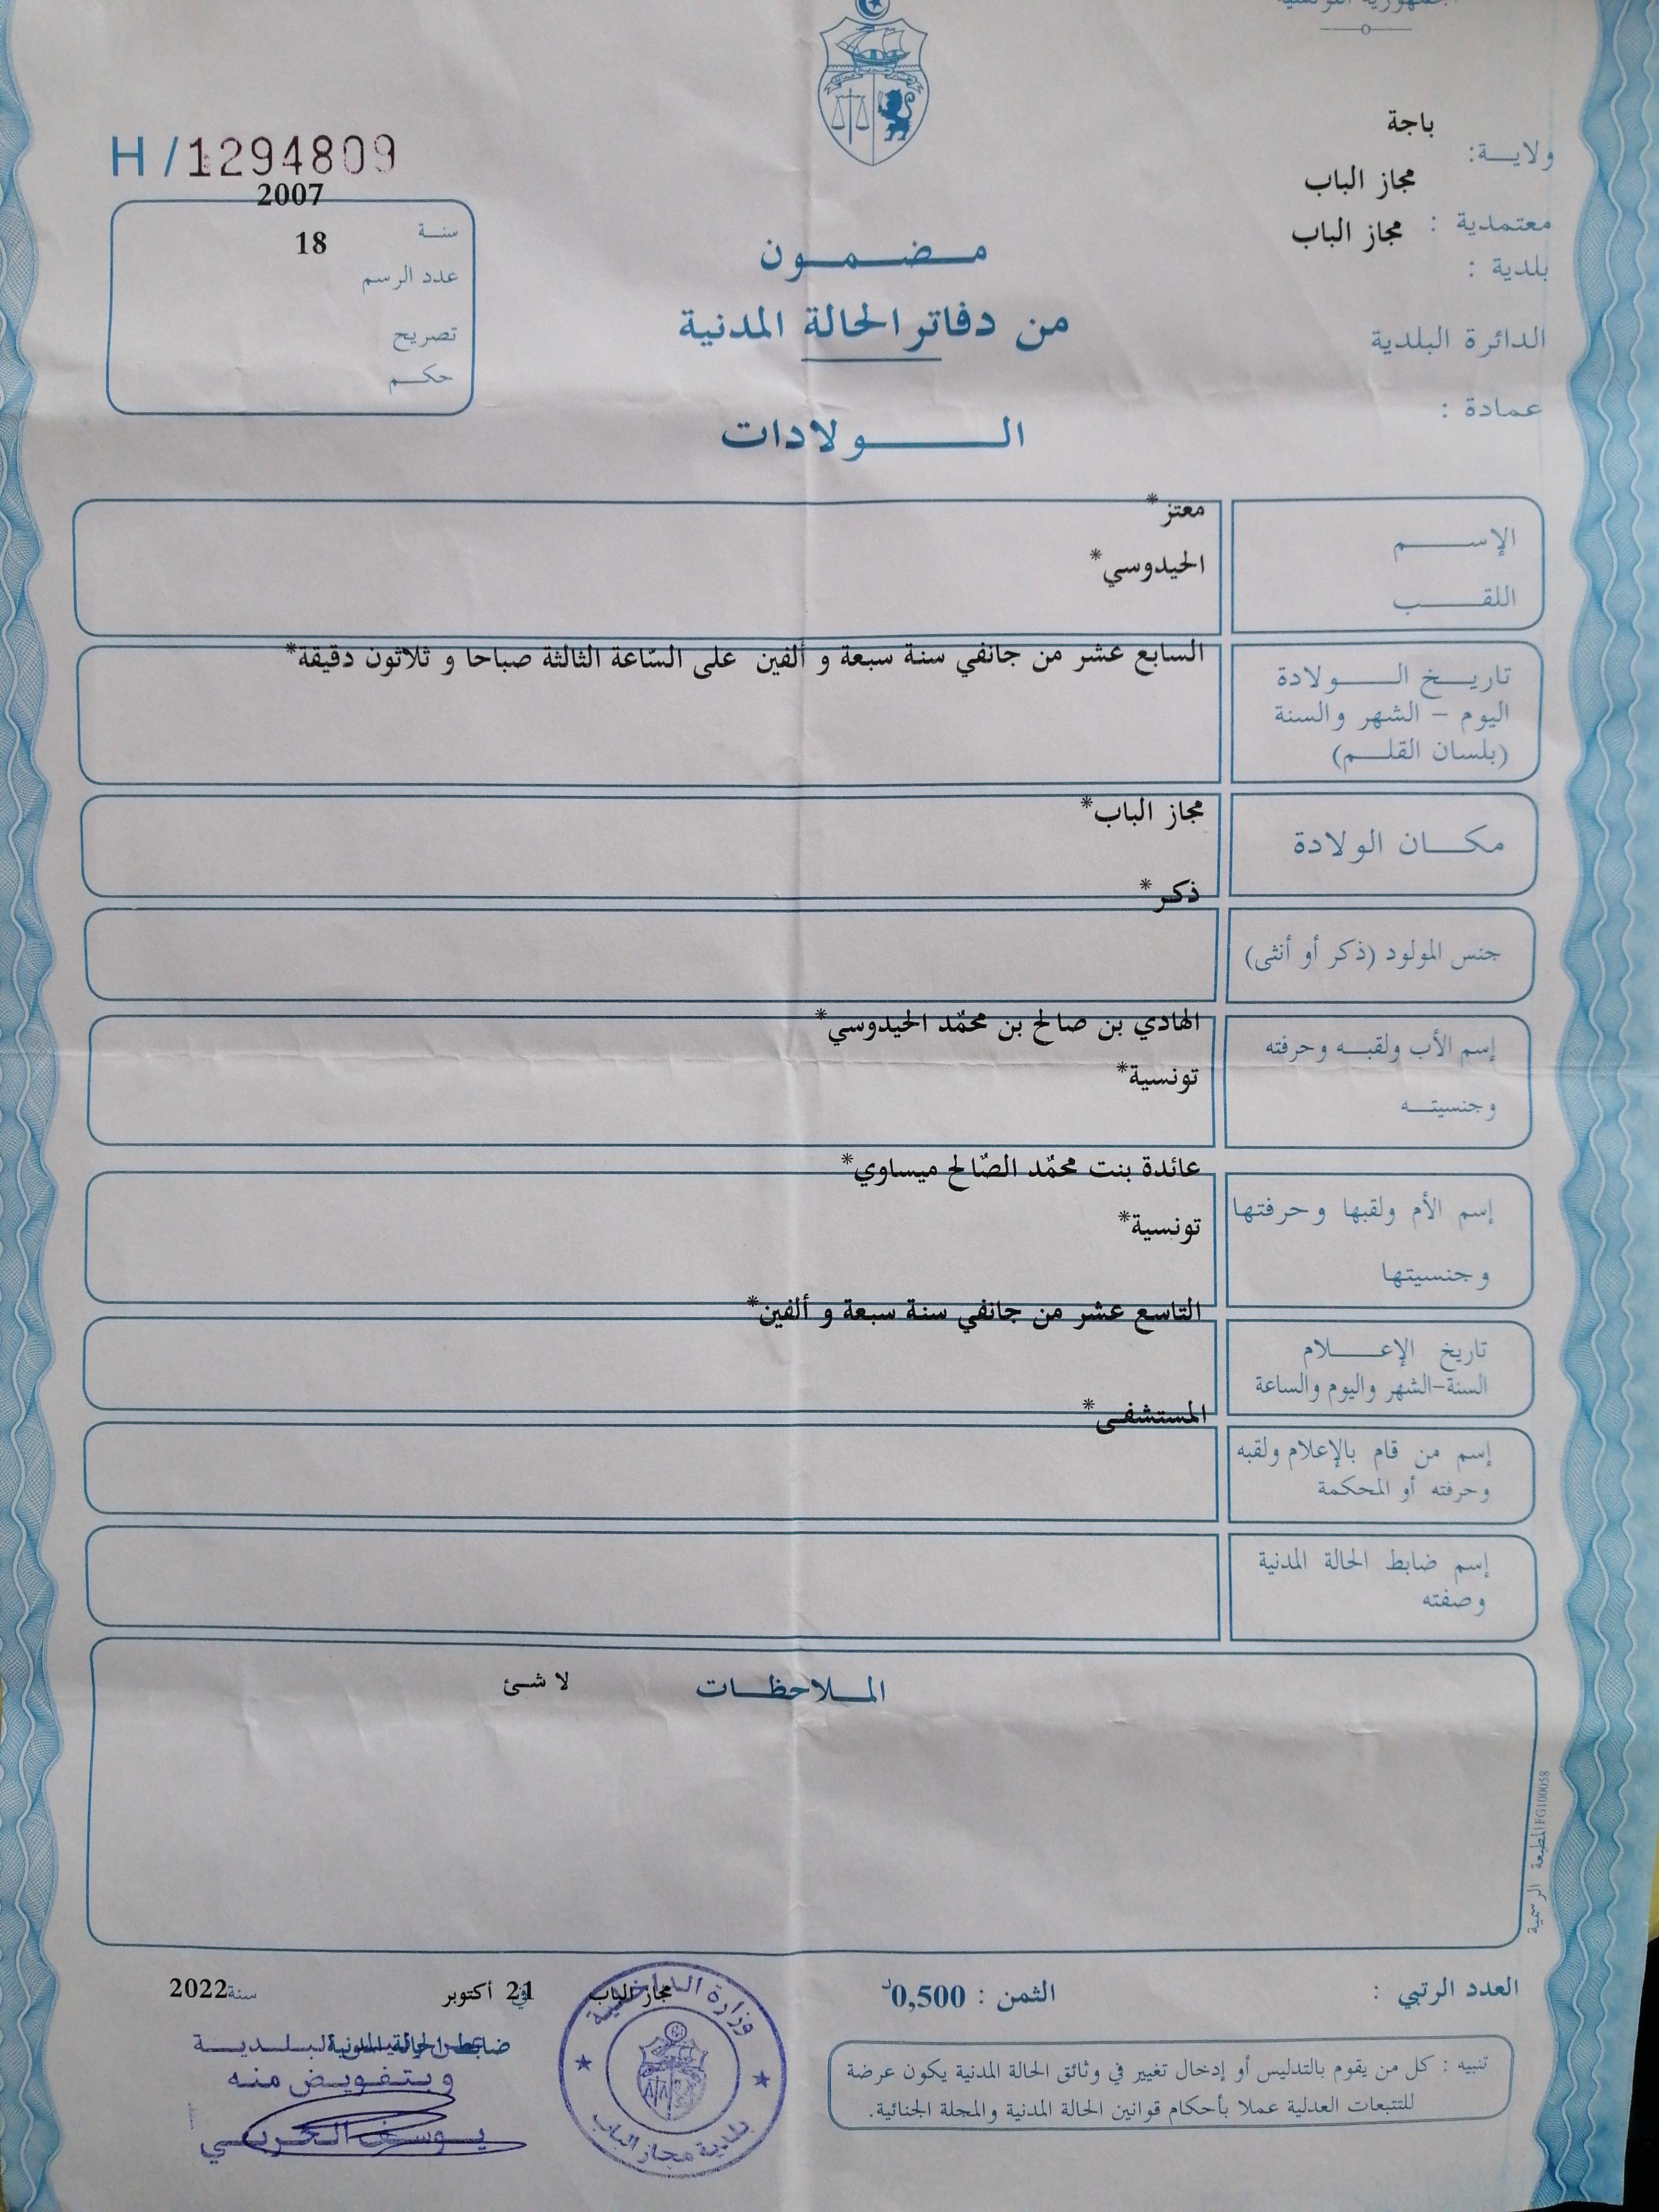 الجمهورية التونسية
ولاية: باجة
معتمدية : مجاز الباب
بلدية : مجاز الباب
الدائرة البلدية
عمادة :
H/1294809
سنة 2007
عدد الرسم 18
تصريح
حكم
مضمون
من دفاتر الحالة المدنية
الولادات
الإسم معتز*
اللقب الحيدوسي*
تاريخ الولادة السابع عشر من جانفي سنة سبعة و ألفين على السّاعة الثالثة صباحا و ثلاثون دقيقة*
اليوم - الشهر والسنة
(بلسان القلم)
مكان الولادة مجاز الباب*
جنس المولود (ذكر أو أنثى) ذكر*
إسم الأب ولقبه وحرفته الهادي بن صالح بن محمّد الحيدوسي*
وجنسيته تونسية*
إسم الأم ولقبها وحرفتها عائدة بنت محمّد الصّالح ميساوي*
وجنسيتها تونسية*
تاريخ الإعلام التاسع عشر من جانفي سنة سبعة و ألفين*
السنة-الشهر واليوم والساعة
إسم من قام بالإعلام ولقبه المستشفى*
وحرفته أو المحكمة
إسم ضابط الحالة المدنية
وصفته
الملاحظات لا شئ
المطبعة الرسمية FG100058
العدد الرتبي :
الثمن : 0,500د
مجاز الباب في 21 أكتوبر سنة 2022
ضابط الحالة المدنية
وبتفويض منه
يوسف الحربي
وزارة الداخلية
بلدية مجاز الباب
تنبيه : كل من يقوم بالتدليس أو إدخال تغيير في وثائق الحالة المدنية يكون عرضة
للتتبعات العدلية عملا بأحكام قوانين الحالة المدنية والمجلة الجنائية.